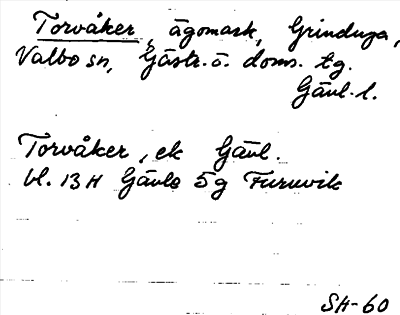 Torvåker, ägomark, Grinduga,
Valbo sn, Gästr. ö. doms. tg.
Gävl. l.
Torvåker, ek Gävl.
bl. 13 H Gävle 5g Furuvik
SH-60